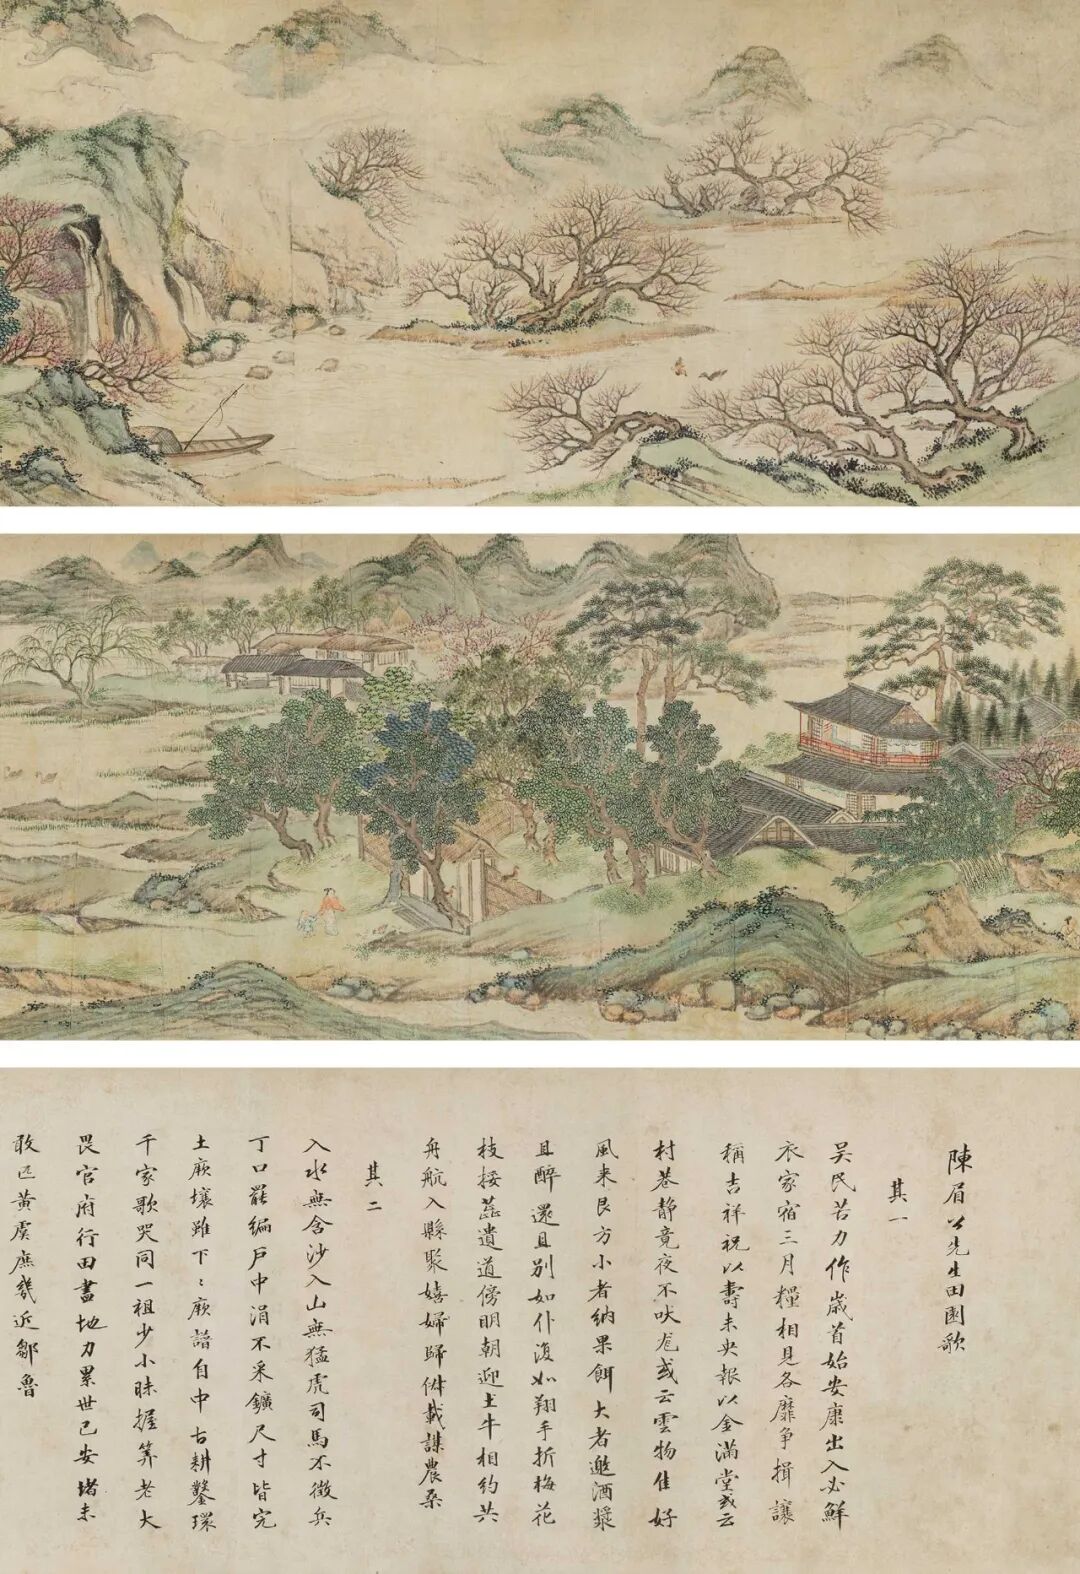 陳眉公先生田園歌
其一
吳民苦力作歲首始安康出入必鮮
衣家宿三月糧相見各靡爭揖讓
稱吉祥祝以壽未央報以金滿堂或云
村巷靜竟夜不吠尨或云雲物佳好
風来艮方小者納果餌大者邀酒漿
且醉還且別如仆復如翔手折梅花
枝接蕋遺道傍明朝迎土牛相約共
舟航入縣聚嬉婦歸俶載謀農桑
其二
入水無含沙入山無猛虎司馬不徵兵
丁口罷編戶中涓不采鑛尺寸皆完
土厥壤雖下〻厥諳自中古耕鑿環
千家歌哭同一祖少小昧握筭老大
畏官府行田盡地力累世已安堵未
敢匹黃虞庶幾近鄒魯